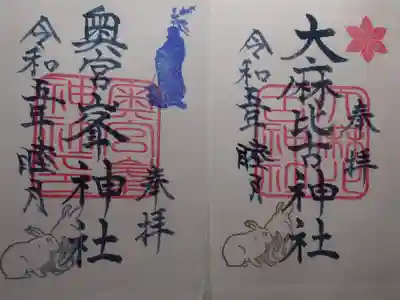 奉拝
大麻比古神社
令和五年睦月
奉拝
奥宮峯神社
令和五年睦月